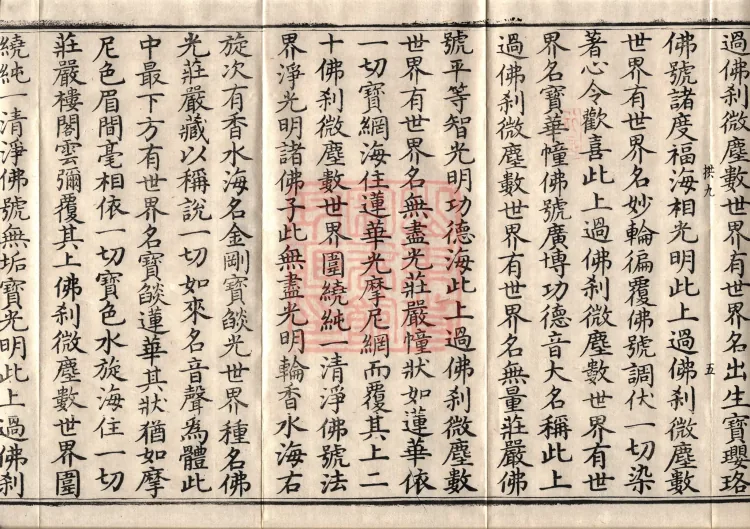 過佛刹微塵數世界有世界名出生寶瓔珞
拱九 五
佛號諸度福海相光明此上過佛刹微塵數
世界有世界名妙輪徧覆佛號調伏一切染
著心令歡喜此上過佛刹微塵數世界有世
界名寶華幢佛號廣博功德音大名稱此上
過佛刹微塵數世界有世界名無量莊嚴佛
號平等智光明功德海此上過佛刹微塵數
世界有世界名無盡光莊嚴幢狀如蓮華依
一切寶網海住蓮華光摩尼網而覆其上二
十佛刹微塵數世界圍繞純一清淨佛號法
界淨光明諸佛子此無盡光明輪香水海右
旋次有香水海名金剛寶燄光世界種名佛
光莊嚴藏以稱說一切如來名音聲爲體此
中最下方有世界名寶燄蓮華其狀猶如摩
尼色眉間毫相依一切寶色水旋海住一切
莊嚴樓閣雲彌覆其上佛刹微塵數世界圍
繞純一清淨佛號無垢寶光明此上過佛刹